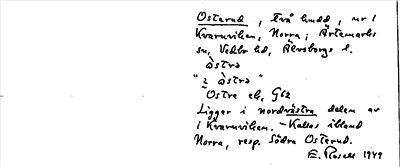 Osterud, två hmdd, nr 1
Kvarnviken, Norra; Ärtemarks
sn, Vedbo hd, Älvsborgs l.
Østrø
"i Østrø"
Ostre eb, G62
Ligger i nordvästra delen av
1 Kvarnviken. – Kallas ibland
Norra, resp. Södra Osterud.
E. Rosell 1949